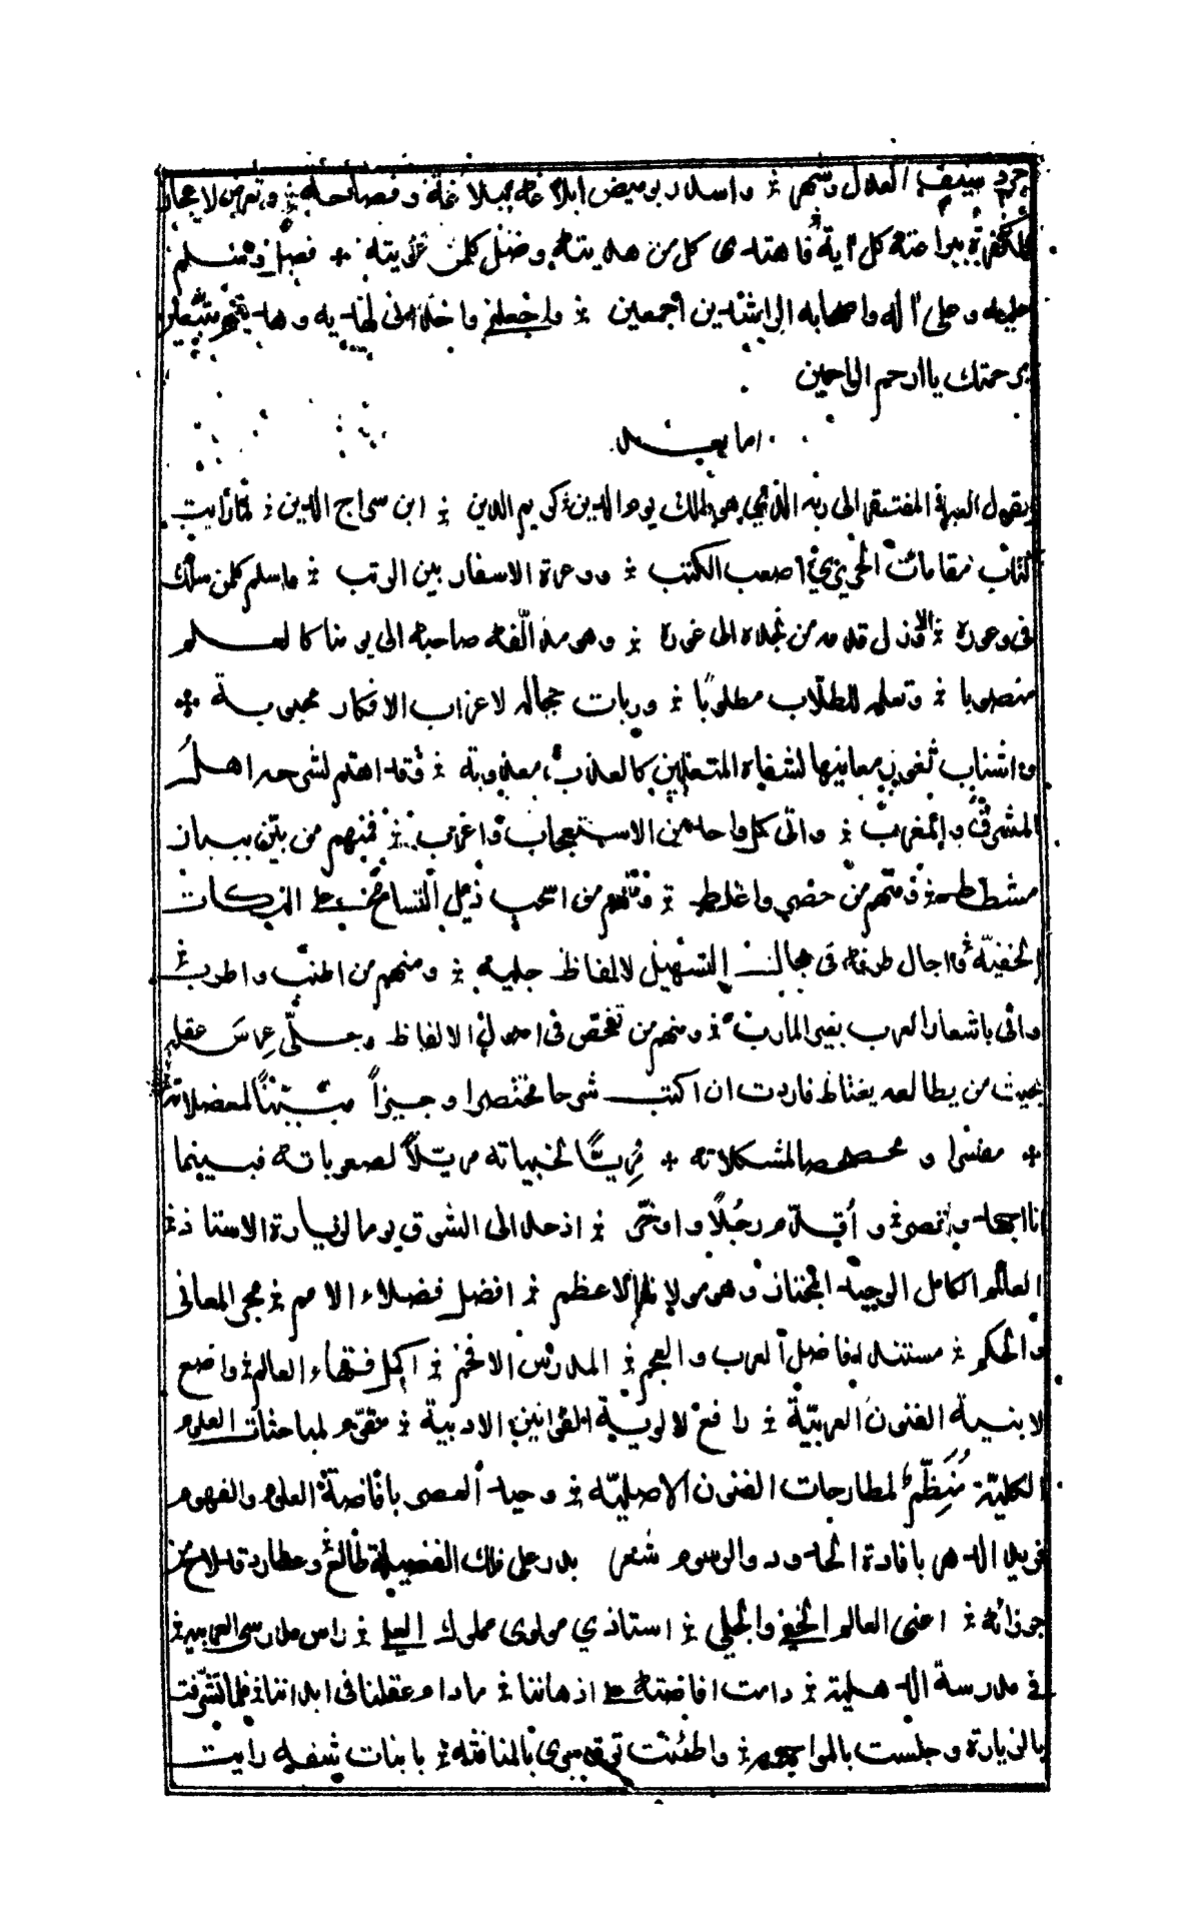 جرد بسيف العدل وشهر ؞ واسد بوميض ابلاغه ببلاغة وفصاحة ؞
كل آية فاهتدى كل من هديته وضل كلمن غويته + فصل وسلم
عليه وعلى آله واصحابه الراشدين أجمعين ؞ واجعلني
برحمتك ياارحم الراحمين
اما بعد
يقول العبد المفتقر الى ربه الذي هو ملك يوم الدين ؞ كريم الدين ؞ ابن سراج الدين ؞ لما رايت
كتاب مقامات الحريري أصعب الكتب ؞ ووعرة الاسفار بين الرتب ؞ ماسلم كلمن سلك
في وعوره ؞ الا وزل قدمه من نجده الى غوره ؞ وهو مذ الّفه صاحبه الى يومنا كالعلم
منصوبا ؞ وتعلمه للطلّاب مطلوبًا ؞ وربات حجاله لاعزاب الافكار محبوبة ؞
واشناب ثغور معانيها لشفاه المتعلمين كالعذب معذوبة ؞ وقد اهتم لشرحه اهل
المشرق والمغرب ؞ واتى كل واحد من الاستعجاب واغرب ؞ فمنهم من بيّن ببيان
مشطط ؞ ومنهم من خضى واغلط ؞ ومنهم من اسحب ذيل التسامح على النكات
الخفيّة واجال طرفه في مجال التسهيل لالفاظ جلية ؞ ومنهم من اطنب واطرب ؞
واتى باشعار العرب بغير المآرب ؞ ومنهم من تفحّص في اصول الالفاظ وجلّى
بحيث من يطالعه يغتاظ فاردت ان اكتب شرحا مختصرا وجيزاً مبيّنًا لمعضلاته
+ مفسرا ومحصحصا لمشكلاته + مزيّنًا لخبياته مريّلاً لصعوباته فبينما
انا ؞ وأقدّم رجلًا واوخّر ؞ اذ حداني الشوق يوما لزيارة الاستاذ ؞
العالم الكامل الوجيه المجتاز وهو مولانا الاعظم ؞ افضل فضلاء الامم ؞ مجرى المعاني
والحكم ؞ مستند افاضل العرب والعجم ؞ المدرّس الافخم ؞ اكمل فقهاء العالم ؞ واضع
لابنية الفنون العربيّة ؞ رافع لالوية القوانين الادبية ؞ مقوّم لمباحثات العلوم
الكليّة منظّم لمطارحات الفنون الاصليّه ؞ وحيد العصر بافاضة العلوم والفهوم
فريد الدهر بافادة الحدود والرسوم شعر بدر على فلك الفضيلة طالع وعطارد قد لاح من
جوزائه ؞ اعنى العالم الخفي والجلي ؞ استاذي مولوى مملوك العلي ؞ راس مدرسى العربيه ؞
في مدرسة الدهلية ؞ دامت افاضته على اذهاننا ؞ مادام عقلنا في ابداننا ؞ فلما تشرّفت
بالزيارة وجلست بالمواجهه ؞ واطفئت بالمنافثه ؞ بابنات شفه رايت